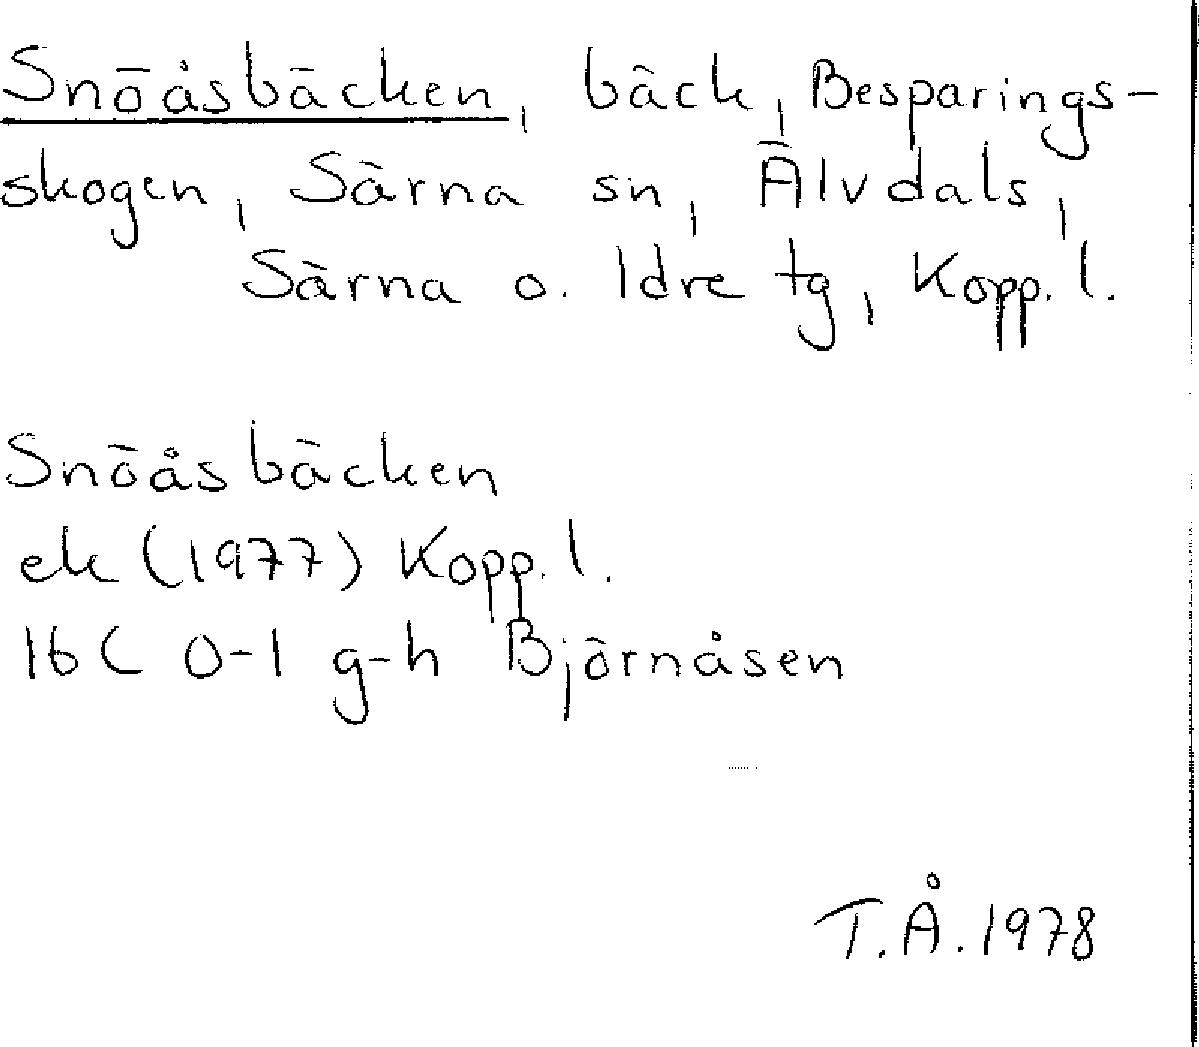 Snöåsbäcken, bäck, Besparings-
skogen, Särna sn, Älvdals,
Särna o. Idre tg, Kopp. l.
Snöåsbäcken
ek (1977) Kopp. l.
16C 0-1 g-h Björnåsen
T.Å. 1978